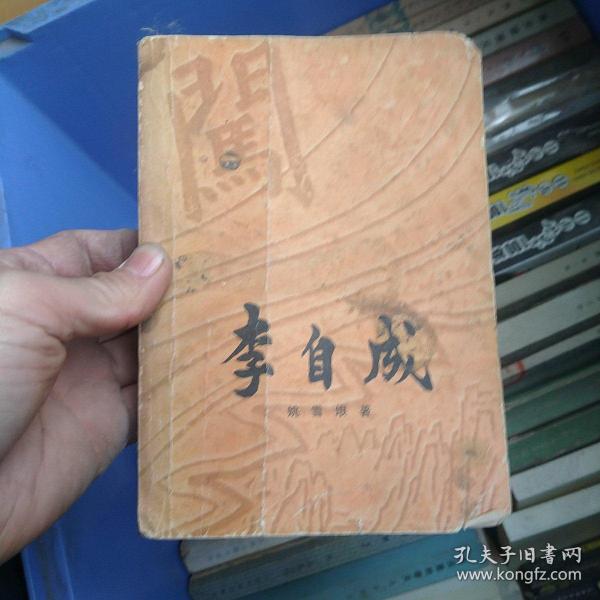 闖
李自成
姚雪垠著
孔夫子旧書网
www.kongfz.com